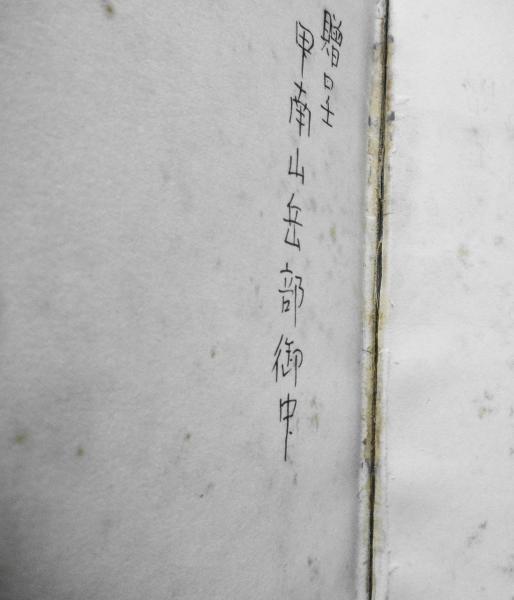 贈呈
甲南山岳部御中